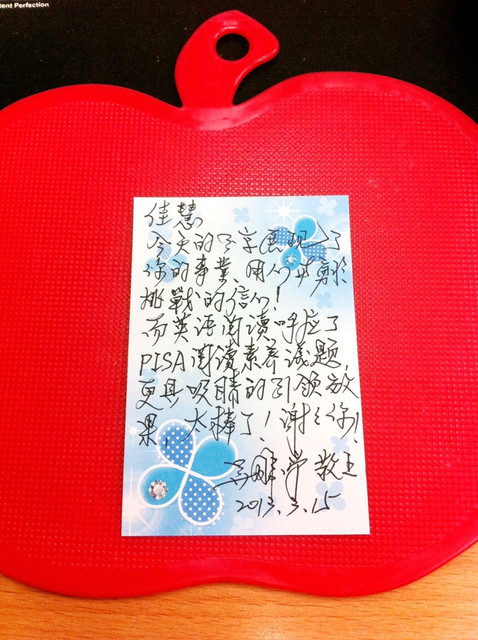 tent Perfection
佳慧
今天的分享展現了
你的專業、用心與勇於
挑戰的信心！
而英语阅读呼应了
PISA阅读素养议题，
更具吸睛的引领效
果，太棒了！谢谢你！
教主
2013.3.15